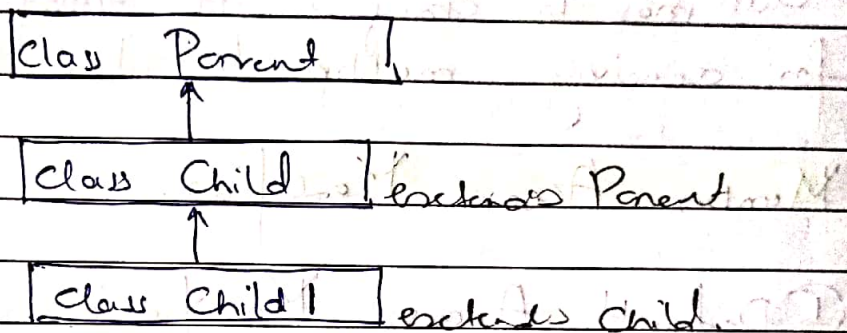 class Parent
class Child extends Parent
class Child1 extends Child.